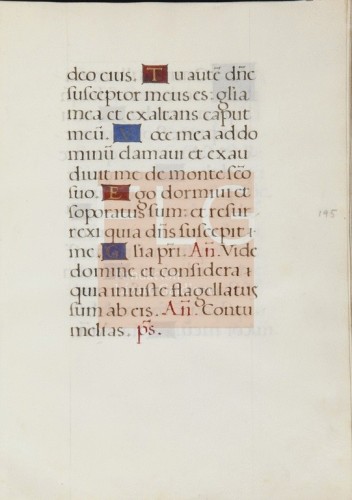 deo eius. Tu autē dñe
ſuſceptor meus es: gľia
mea et exaltans caput
meū. Voce mea ad do
minū clamaui et exau
diuit me de monte ſc̄o
ſuo. Ego dormiui et
ſoporatus ſum: et reſur
rexi quia dñs ſuſcepit
me. Glia pr̄i. Añ. Vide
domine et conſidera
quia iniuſte flagellatus
ſum ab eis. Añ. Contu
melias. pš.
195